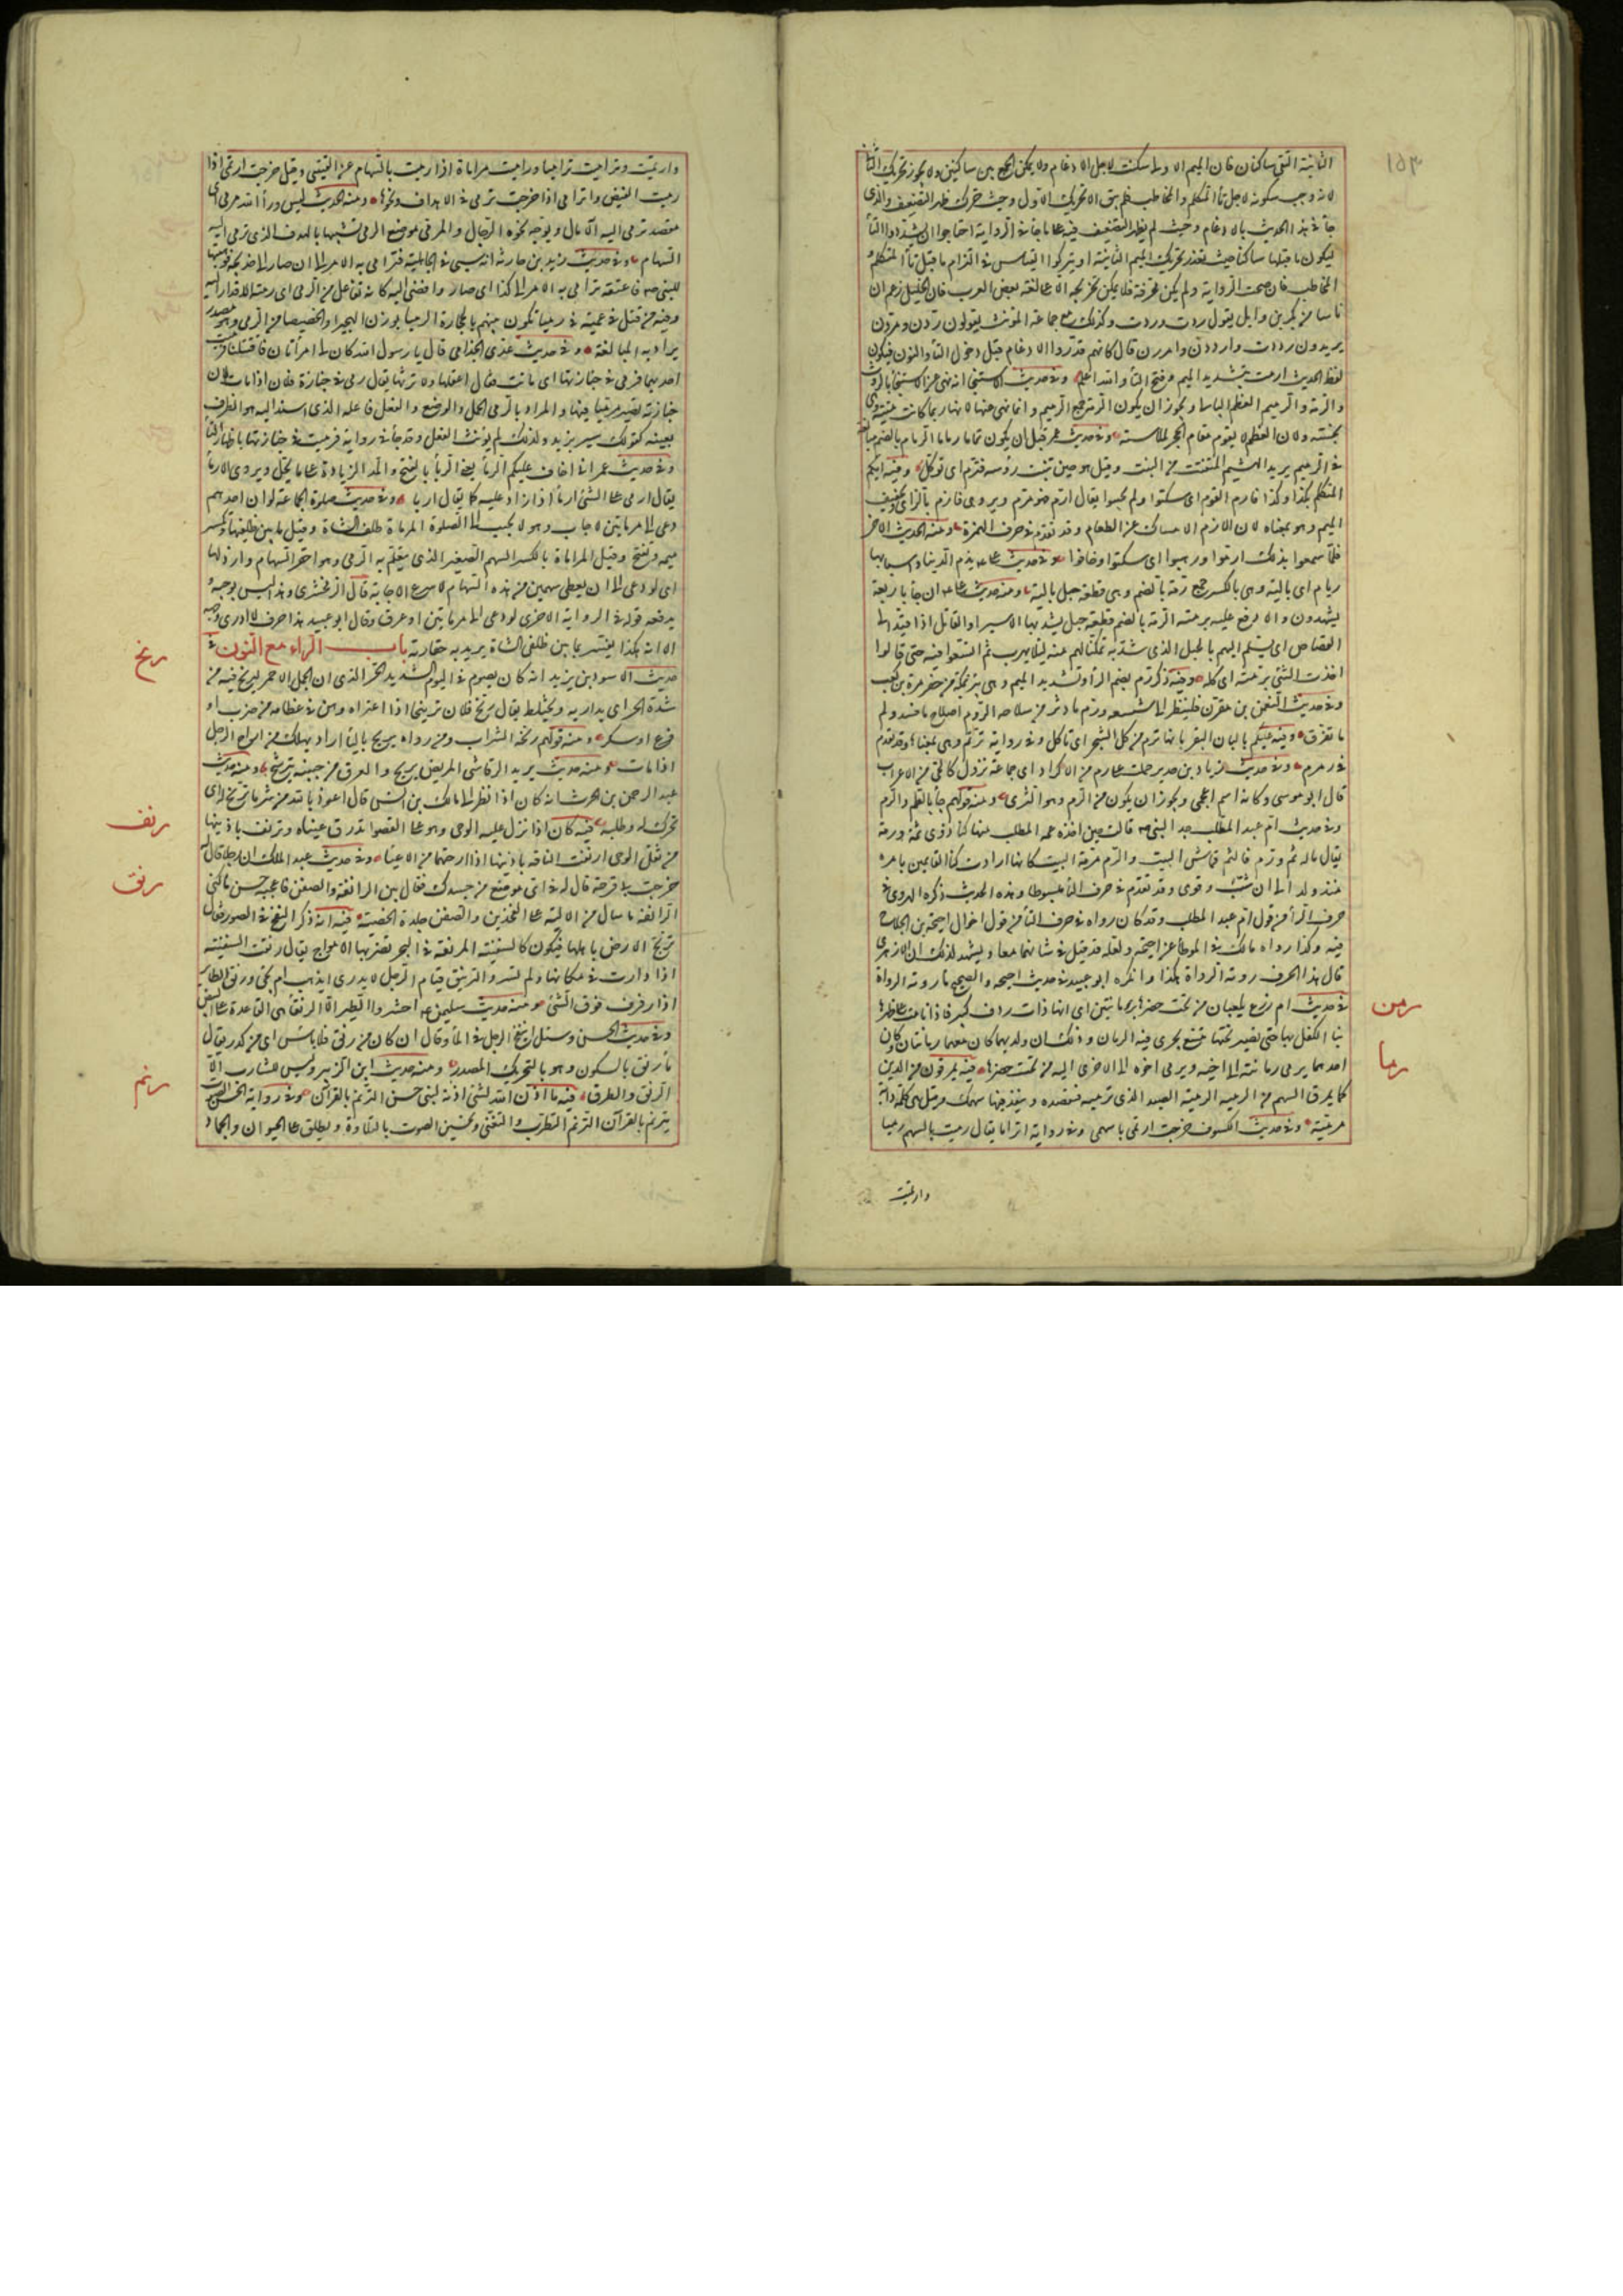 ١٥٣
الثانية التقى ساكنان فان الميم الاولى سكنت لاجل الادغام ولا يمكن الجمع بين ساكنين ولا يجوز تحريك الثانية
لانه وجب سكونه لاجل تاء المتكلم والمخاطب فلم يبق الا تحريك الاول وحيث حرك ظهر التضعيف والذى
جاء فى هذا الحديث بالادغام وحيث لم يظهر التضعيف فيه على ما جاء فى الرواية احتاجوا ان يشددوا التاء
ليكون ما قبلها ساكنا حيث تعذر تحريك الميم الثانية او يتركوا القياس فى التزام ما قبل تاء المتكلم
المخاطب فان صحت الرواية ولم يكن محرفة فلا يمكن تخريجه الا على لغة بعض العرب فان الخليل زعم ان
ناسا من بكر بن وايل يقول ردت وردت وكذلك مع جماعة المونث يقولون ردن ومردن
يريدون رددت وارددن وامررن قال كانهم قدروا الادغام قبل دخول التاء والنون فيكون
لفظ الحديث ارمت بتشديد الميم وفتح التاء والله اعلم وفى حديث الاستنجاء انه نهى عن الاستنجاء بالروث
والرمة والرميم العظم البالى ويجوز ان يكون الرمة جمع الرميم وانما نهى عنها لانها ربما كانت ميتة وهى
نجسة ولان العظم لا يقوم مقام الحجر لملاسته وفى حديث عمر قبل ان يكون ثماما ثم رماما الرمام بالضم مبالغة
فى الرميم يريد الهشيم المتفتت من النبت وقيل هو حين تنبت رؤسه فترم اى توكل وفيه ايكم
المتكلم بكذا وكذا فارم القوم اى سكتوا ولم يجيبوا يقال ارم فهو مرم ويروى فازم بالزاى وتخفيف
الميم وهو بمعناه لان الازم الامساك عن الطعام وقد تقدم فى حرف الهمزة ومنه الحديث الاخر
فلما سمعوا بذلك ارموا ورهبوا اى سكتوا وخافوا وفى حديث على يذم الدنيا واسبابها
رمام اى بالية وهى بالكسر جمع رمة بالضم وهى قطعة حبل بالية ومنه حديث على ان جاء باربعة
يشهدون والا دفع عليه برمته الرمة بالضم قطعة حبل يشد بها الاسير او القاتل اذا قيد الى
القصاص اى يسلم اليهم بالحبل الذى شد به تمكنا لهم منه ليلا يهرب ثم اتسعوا فيه حتى قالوا
اخذت الشئ برمته اى كله وفيه ذكر رم بضم الراء وتشديد الميم وهى بئر بمكة من حفر مرة بن كعب
وفى حديث النعمن بن مقرن فلينظر الى شسعه ورم ما دثر من سلاحه الرم اصلاح ما فسد ولم
ما تفرق وفيه عليكم بالبان البقر بانها ترم من كل الشجر اى تاكل وفى رواية ترتم وهى بمعناه وقد تقدم
فى رمرم وفى حديث زياد بن حدير حملت على رم من الاكراد اى جماعة نزول كالحى من الاعراب
قال ابو موسى وكانه اسم اعجمى ويجوز ان يكون من الرم وهو الثرى ومنه قولهم جاء بالطم والرم
وفى حديث ام عبد المطلب جد النبى صم قالت حين اخذه عمه المطلب منها كنا ذوى ثمه ورمه
يقال ماله ثم ورم فالثم قماش البيت والرم مرمة البيت كانها ارادت كنا القايمين بامره
منذ ولد الى ان شب وقوى وقد تقدم فى حرف الثاء مبسوطا وهذا الحديث ذكره الهروى فى
حرف الراء من قول ام عبد المطلب وقد كان رواه فى حرف الثاء من قول اخوال احيحة بن الجلاح
فيه وكذا رواه مالك فى الموطأ عن احيحة ولعله قد قيل فى شانهما معا ويشهد لذلك ان الازهرى
قال هذا الحرف روته الرواة هكذا وانكره ابو عبيد فى حديث احيحه والصحيح ما روته الرواة
رمن
فى حديث ام زرع يلعبان من تحت خصرها برمانتين اى انها ذات ردف كبير فاذا نامت على ظهرها
نبا الكفل بها حتى يصير تحتها متسع يجرى فيه الرمان وذلك ان ولديها كان معهما رمانتان وكان
رما
احدهما يرمى رمانته الى اخيه ويرمى اخوه الى الاخرى اليه من تحت خصرها فيه يمرقون من الدين
كما يمرق السهم من الرمية الرمية الصيد الذى ترميه فتقصده وينفذ فيها سهمك وقيل هى كل دابة
مرمية وفى حديث الكسوف خرجت ارتمى باسهمى وفى رواية اترامى يقال رميت بالسهم رميا
وارتميت
وارتميت وتراميت تراميا وراميت مراماة اذا رميت بالسهام عن القسى وقيل خرجت ارتمى اذا
رميت القنيص واترامى اذا خرجت ترمى فى الاهداف ونحوها ومنه الحديث ليس وراء الله مرمى اى
مقصد ترمى اليه الآمال ويوجه نحوه الرجال والمرمى موضع الرمى تشبيها بالهدف الذى ترمى اليه
السهام وفى حديث زيد بن حارثة انه سبى فى الجاهلية فترامى به الامر الى ان صار الى خديجة فوهبتها
للنبى صم فاعتقه ترامى به الامر الى كذا اى صار وافضى اليه كانه تفاعل من الرمى اى رمته الاقدار اليه
وفيه من قتل فى عمية فى رميا تكون بينهم بالحجارة الرميا بوزن الهجيرا والخصيصا من الرمى وهو مصدر
يراد به المبالغة وفى حديث عدى الجذامى قال يا رسول الله كان لى امرأتان فاقتتلتا فرميت
احديهما فرمى فى جنازتها اى ماتت فقال اعقلها ولا ترثها يقال رمى فى جنازة فلان اذا مات لان
جنازته تصير مرميا فيها والمراد بالرمى الحمل والوضع والفعل فاعله الذى اسند اليه هو الظرف
بعينه كقولك سير بزيد ولذلك لم يؤنث الفعل وقد جاء فى رواية فرميت فى جنازتها باظهار التاء
وفى حديث عمر انى اخاف عليكم الرماء يعنى الربا بالفتح والمد الزيادة على ما يحل ويروى الارماء
يقال ارمى على الشئ ارماء اذا زاد عليه كما يقال اربا وفى حديث صلوة الجماعة لو ان احدهم
دعى الى مرماتين لاجاب وهو لا يجيب الى الصلوة المرماة ظلف الشاة وقيل ما بين ظلفيها وتكسر
ميمه وتفتح وقيل المرماة بالكسر السهم الصغير الذى يتعلم به الرمى وهو احقر السهام وارذلها
اى لو دعى الى ان يعطى سهمين من هذه السهام لاسرع الاجابة قال الزمخشرى وهذا ليس بوجيه
يدفعه قوله فى الرواية الاخرى لو دعى الى مرماتين او عرق وقال ابو عبيد هذا حرف لا ادرى ما وجهه
الا انه هكذا يفسر بما بين ظلفى الشاة يريد به حقارته باب الراء مع النون فى
رنح
حديث الاسود ابن يزيد انه كان يصوم فى اليوم الشديد الحر الذى ان الجمل الاحمر ليرنح فيه من
شدة الحر اى يدار به ويختلط يقال رنح فلان ترنيحا اذا اعتراه وهن فى عظامه من ضرب او
فزع او سكر ومنه قولهم رنحه الشراب ومن رواه يريح بالياء اراد يهلك من اراح الرجل
اذا مات ومنه حديث يزيد الرقاشى المريض يرنح والعرق من جبينه يترشح ومنه حديث
عبد الرحمن بن الحرث انه كان اذا نظر الى مالك بن انس قال اعوذ بالله من شر ما ترنح له اى
رنف
تحرك له وطلبه فيه كان اذا نزل عليه الوحى وهو على القصواء تذرف عيناه وترنف باذنيها
من ثقل الوحى ارنفت الناقة باذنيها اذا ارختهما من الاعياء وفى حديث عبد الملك ان رجلا قال له
رنق
خرجت بى قرحة قال له فى اى موضع من جسدك فقال بين الرانفة والصفن فاعجبه حسن ما كنى
الرانفة ما سال من الالية على الفخذين والصفن جلدة الخصية فيه انه ذكر النفخ فى الصور فقال
ترتج الارض باهلها فيكون كالسفينة المرنقة فى البحر تضربها الامواج يقال رنقت السفينة
اذا دارت فى مكانها ولم تسر والترنيق قيام الرجل لا يدرى ايذهب ام يجئ ورنق الطائر
اذا رفرف فوق الشئ ومنه حديث سليمن عم احشروا الطير الا الرنقاء هى القاعدة على البيض
وفى حديث الحسن وسئل اينفخ الرجل فى الماء وقال ان كان من رنق فلا باس اى من كدر يقال
ماء رنق بالسكون وهو بالتحريك المصدر ومنه حديث ابن الزبير وليس للشارب الا
رنم
الرنق والطرق فيه ما اذن الله لشئ اذنه لنبى حسن الترنم بالقران وفى رواية حسن الصوت
يترنم بالقرآن الترنم التطرب والتغنى وتحسين الصوت بالتلاوة ويطلق على الحيوان والجماد